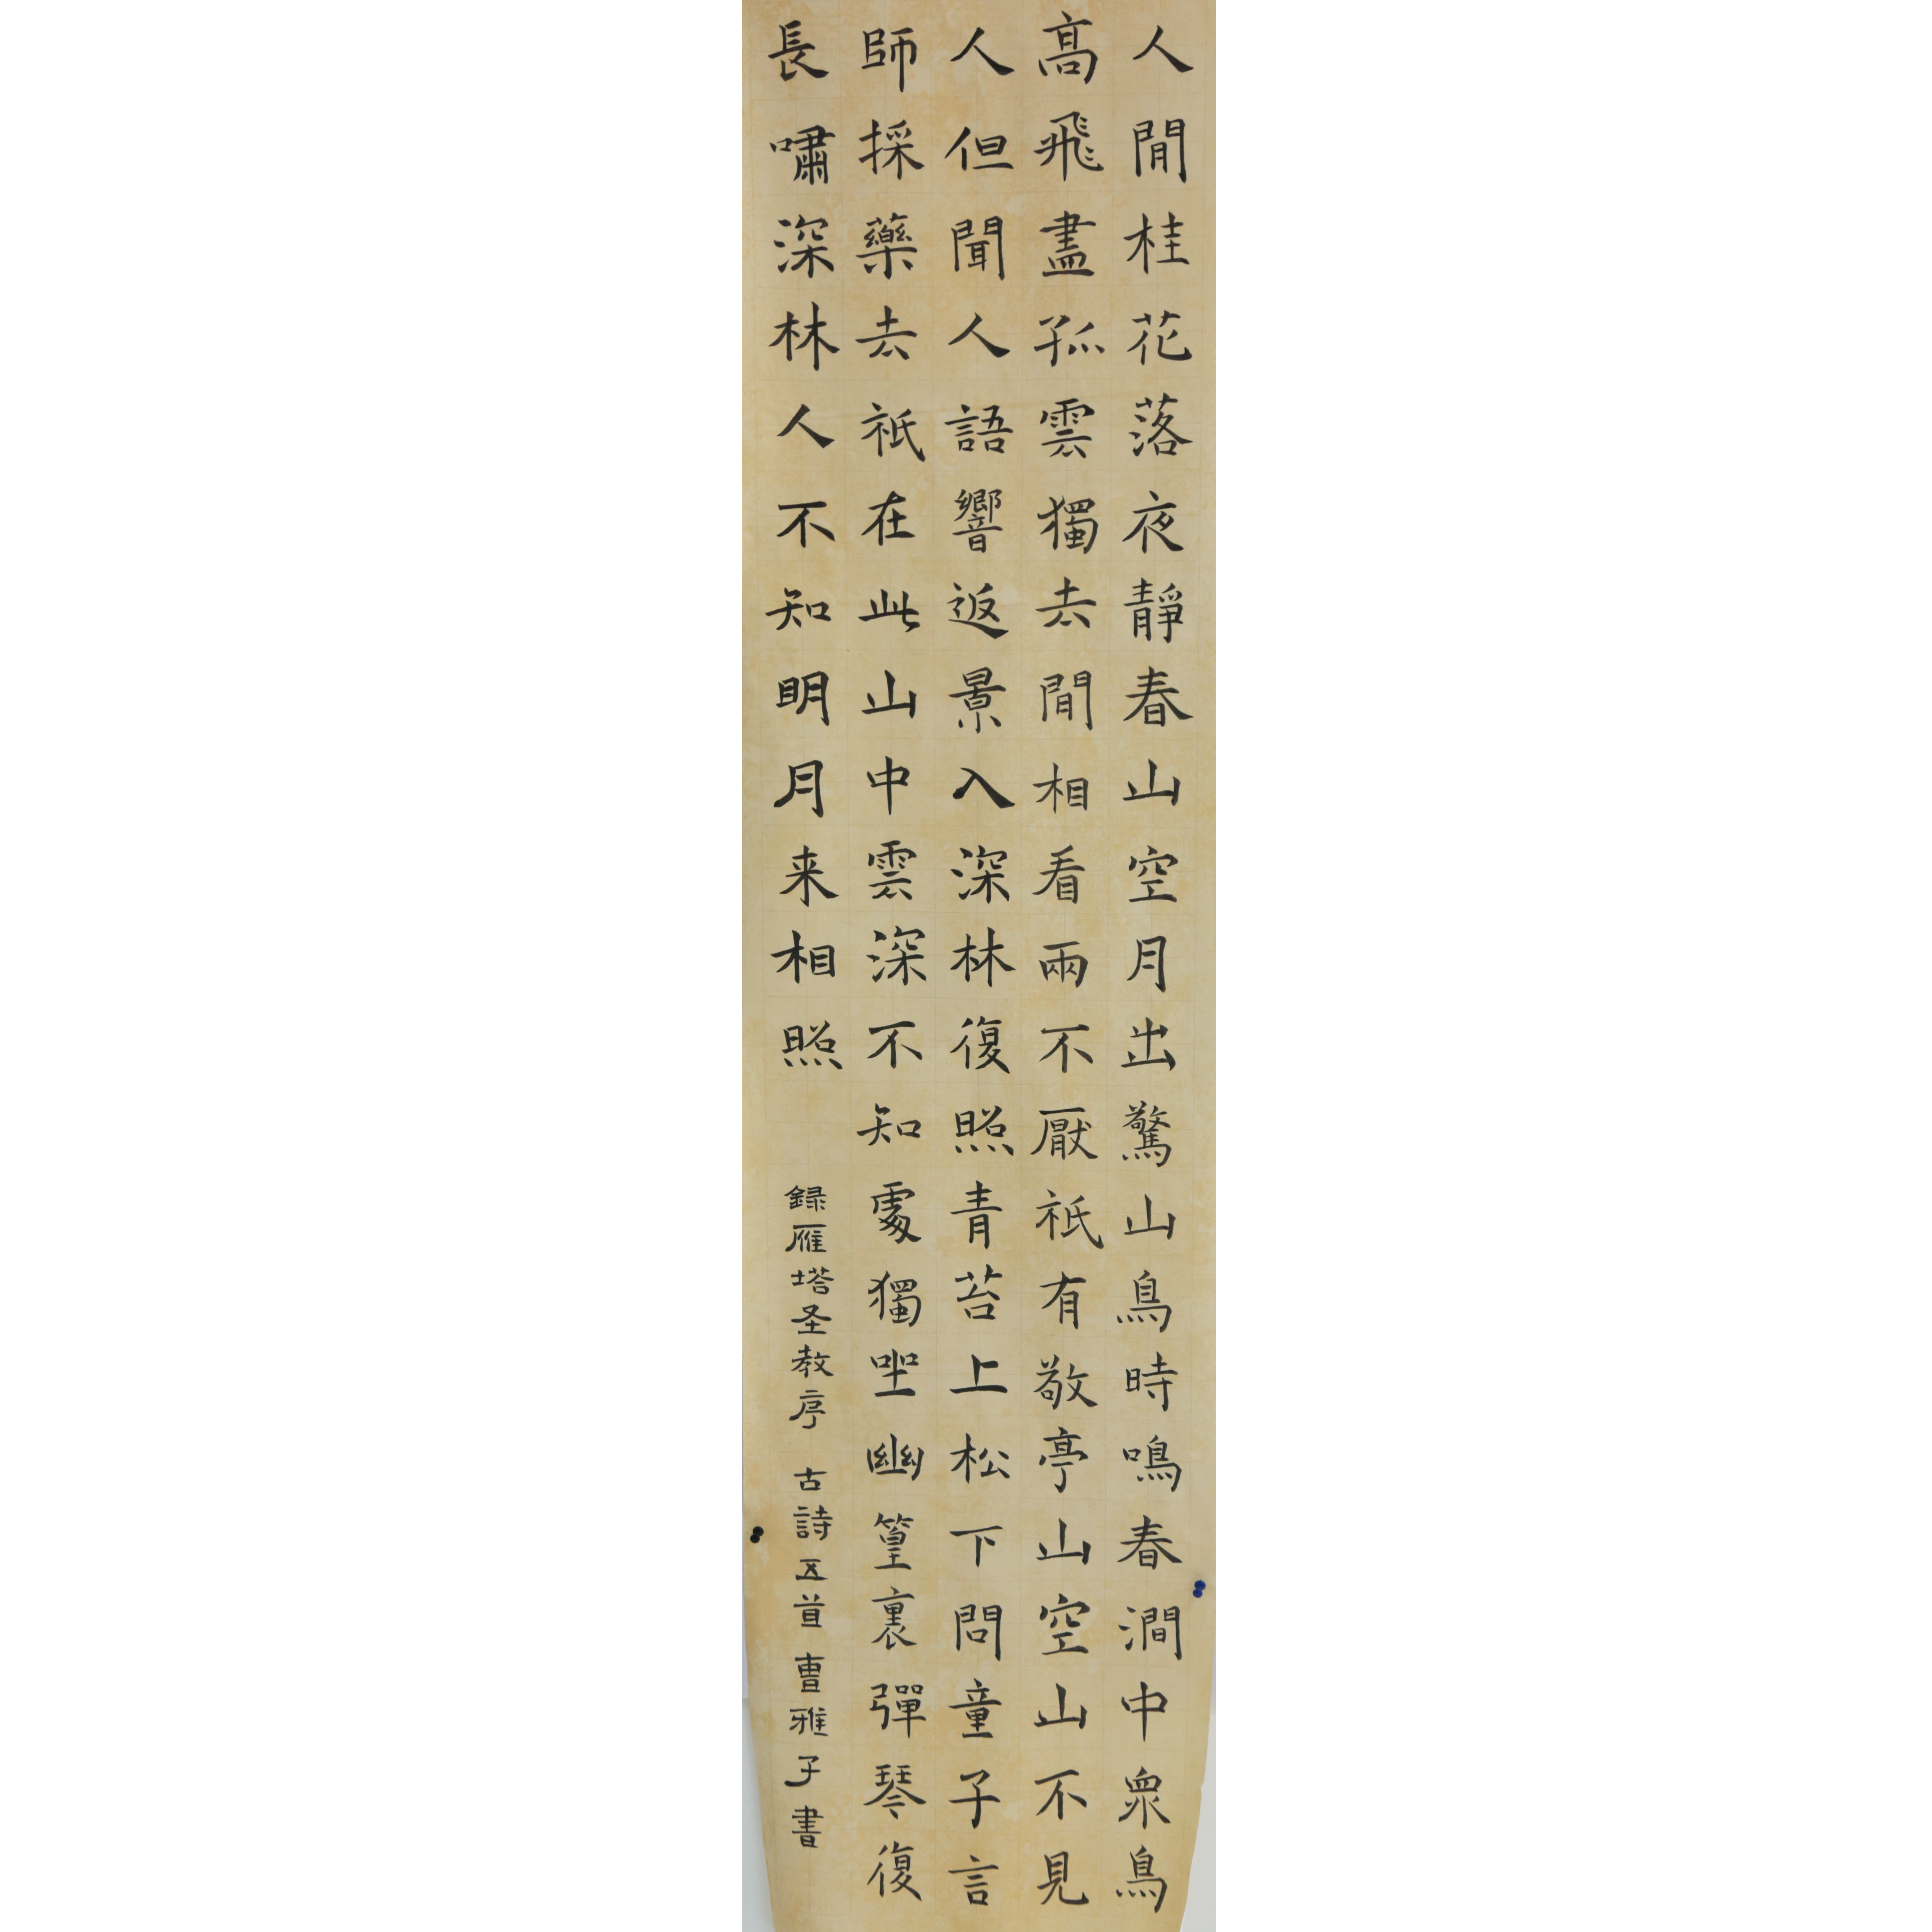 人閒桂花落夜靜春山空月出驚山鳥時鳴春澗中眾鳥
高飛盡孤雲獨去閒相看兩不厭祇有敬亭山空山不見
人但聞人語響返景入深林復照青苔上松下問童子言
師採藥去祇在此山中雲深不知處獨坐幽篁裏彈琴復
長嘯深林人不知明月来相照
録雁塔圣教序 古詩五首 曹雅子書